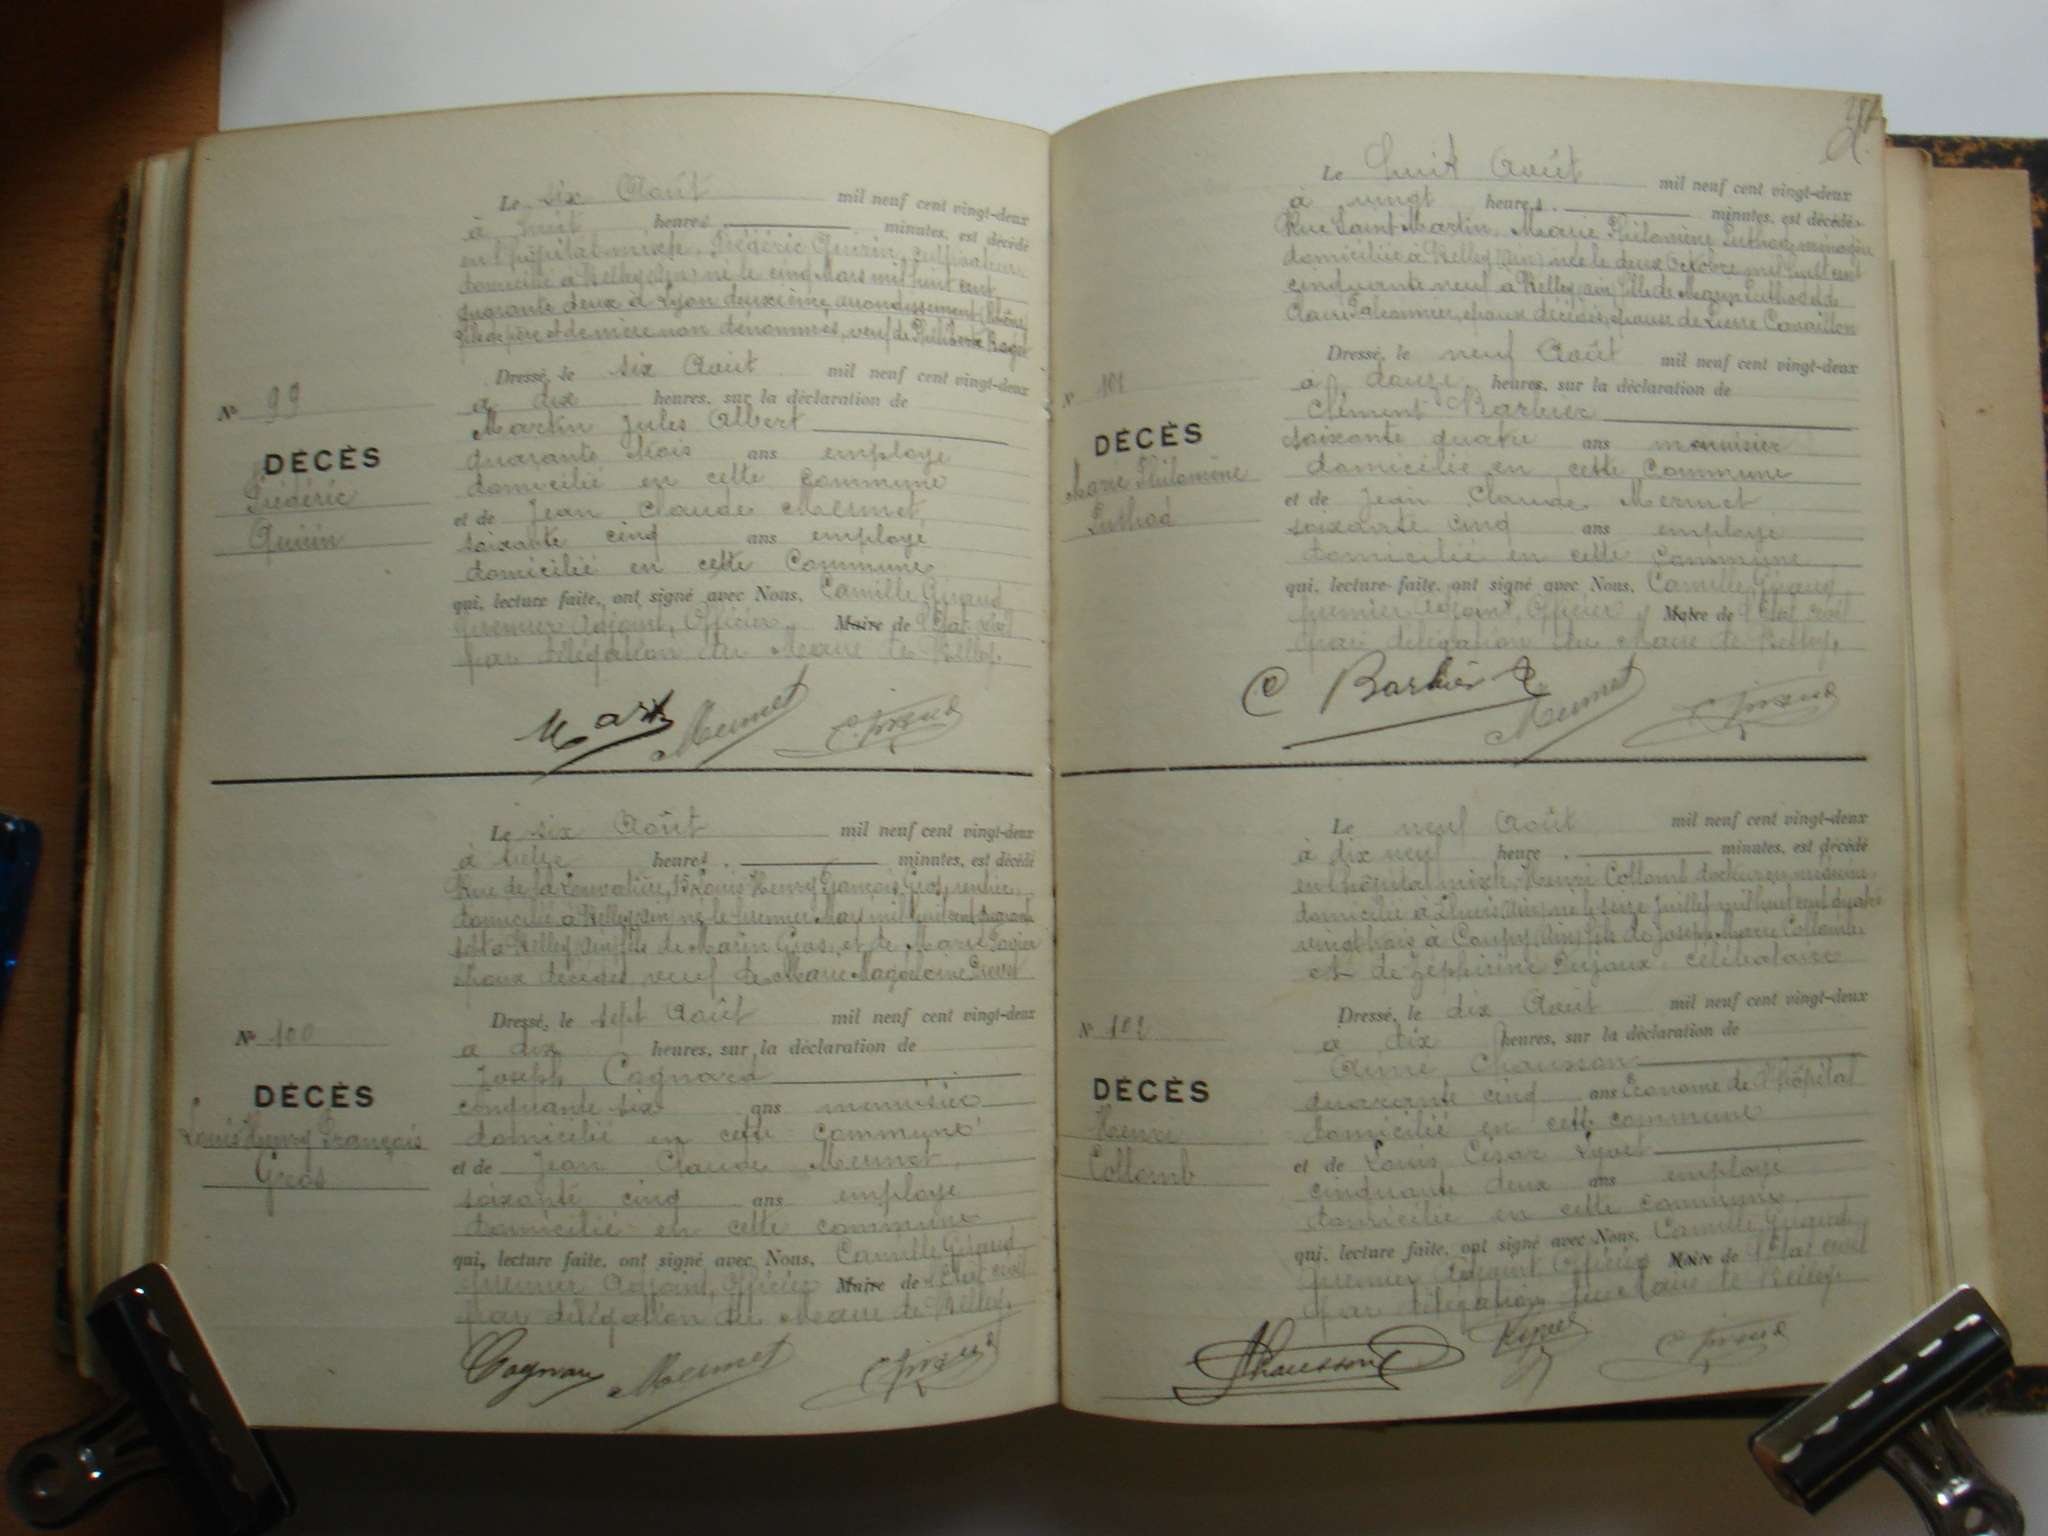 Le six Août mil neuf cent vingt-deux
à huit heures minutes, est décédé
en l'hôpital mixte, Frédéric Quirin, cultivateur
domicilié à Belley (Ain) né le cinq Mars mil huit cent
soixante deux à Lyon deuxième arrondissement (Rhône)
fils de père et de mère non dénommés, veuf de Philiberte Roger
Dressé, le six Août mil neuf cent vingt-deux
à dix heures, sur la déclaration de
Martin Jules Albert
quarante trois ans employé
domicilié en cette Commune
et de Jean Claude Mermet
soixante cinq ans employé
domicilié en cette Commune
qui, lecture faite, ont signé avec Nous, Camille Giraud
premier Adjoint, Officier Maire de l'Etat civil
par délégation du Maire de Belley.
N° 99
DÉCÈS
Frédéric
Quirin
Mart Mermet C. Giraud
Le six Août mil neuf cent vingt-deux
à treize heures minutes, est décédé
Rue de la 15 Louis Henry François Gros, rentier
domicilié à Belley (Ain) né le premier Mai mil huit cent
sept à Belley (Ain) fils de Marin Gros, et de Marie
époux décédés, veuf de Marie Magdeleine
Dressé, le sept Août mil neuf cent vingt-deux
à dix heures, sur la déclaration de
Joseph Cagnard
cinquante six ans menuisier
domicilié en cette Commune
et de Jean Claude Mermet
soixante cinq ans employé
domicilié en cette commune
qui, lecture faite, ont signé avec Nous, Camille Giraud
premier Adjoint, Officier Maire de l'Etat civil
par délégation du Maire de Belley.
N° 100
DÉCÈS
Louis Henry François
Gros
Cagnard Mermet C. Giraud
Le huit Août mil neuf cent vingt-deux
à vingt heures minutes, est décédée
Rue Saint Martin, Marie Philomène Luthod, ménagère
domiciliée à Belley (Ain) née le deux Octobre mil huit cent
cinquante neuf à Belley (Ain) fille de Luthod et de
Claire époux décédés, épouse de Pierre Cavaillon
Dressé, le neuf Août mil neuf cent vingt-deux
à douze heures, sur la déclaration de
Clément Barbier
soixante quatre ans menuisier
domicilié en cette Commune
et de Jean Claude Mermet
soixante cinq ans employé
domicilié en cette Commune
qui, lecture faite, ont signé avec Nous, Camille Giraud
premier Adjoint, Officier Maire de l'Etat civil
par délégation du Maire de Belley.
N° 101
DÉCÈS
Marie Philomène
Luthod
C Barbier Mermet C. Giraud
Le neuf Août mil neuf cent vingt-deux
à dix neuf heure minutes, est décédé
en l'hôpital mixte, Henri Collomb docteur en médecine
domicilié à Lhuis (Ain) né le seize Juillet mil huit cent quatre
vingt trois à Coupy (Ain) fils de Joseph Marie Collomb
et de Zéphirine Dujoux, célibataire
Dressé, le dix Août mil neuf cent vingt-deux
à dix heures, sur la déclaration de
Aimé Chausson
quarante cinq ans Econome de l'hôpital
domicilié en cette commune
et de Louis César Lyvet
cinquante deux ans employé
domicilié en cette commune
qui, lecture faite, ont signé avec Nous, Camille Giraud
premier Adjoint Officier Maire de l'Etat civil
par délégation du Maire de Belley.
N° 102
DÉCÈS
Henri
Collomb
Chausson C. Giraud